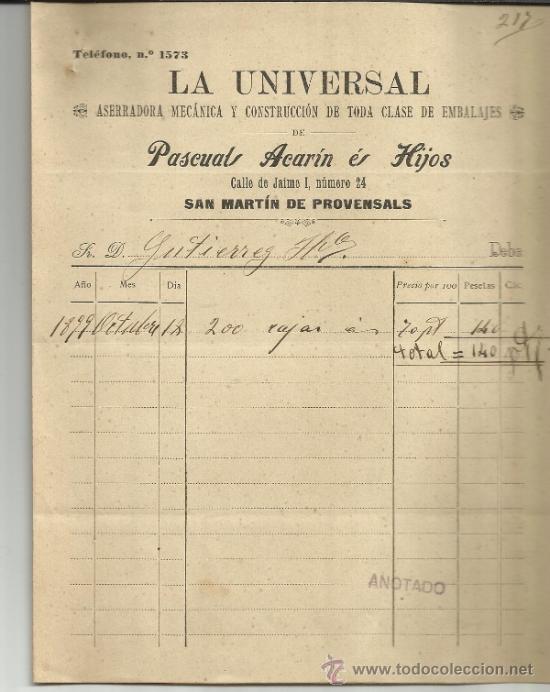 217
Teléfono, n.º 1573
LA UNIVERSAL
ASERRADORA MECÁNICA Y CONSTRUCCIÓN DE TODA CLASE DE EMBALAJES
DE
Pascual Acarín é Hijos
Calle de Jaime I, número 24
SAN MARTÍN DE PROVENSALS
Sr. D. Gutierrez Debe
Año Mes Dia Precio por 100 Pesetas Cts.
1899 Octubre 18 200 cajas á 70 pt 140
total = 140
ANOTADO
todocoleccion
www.todocoleccion.net